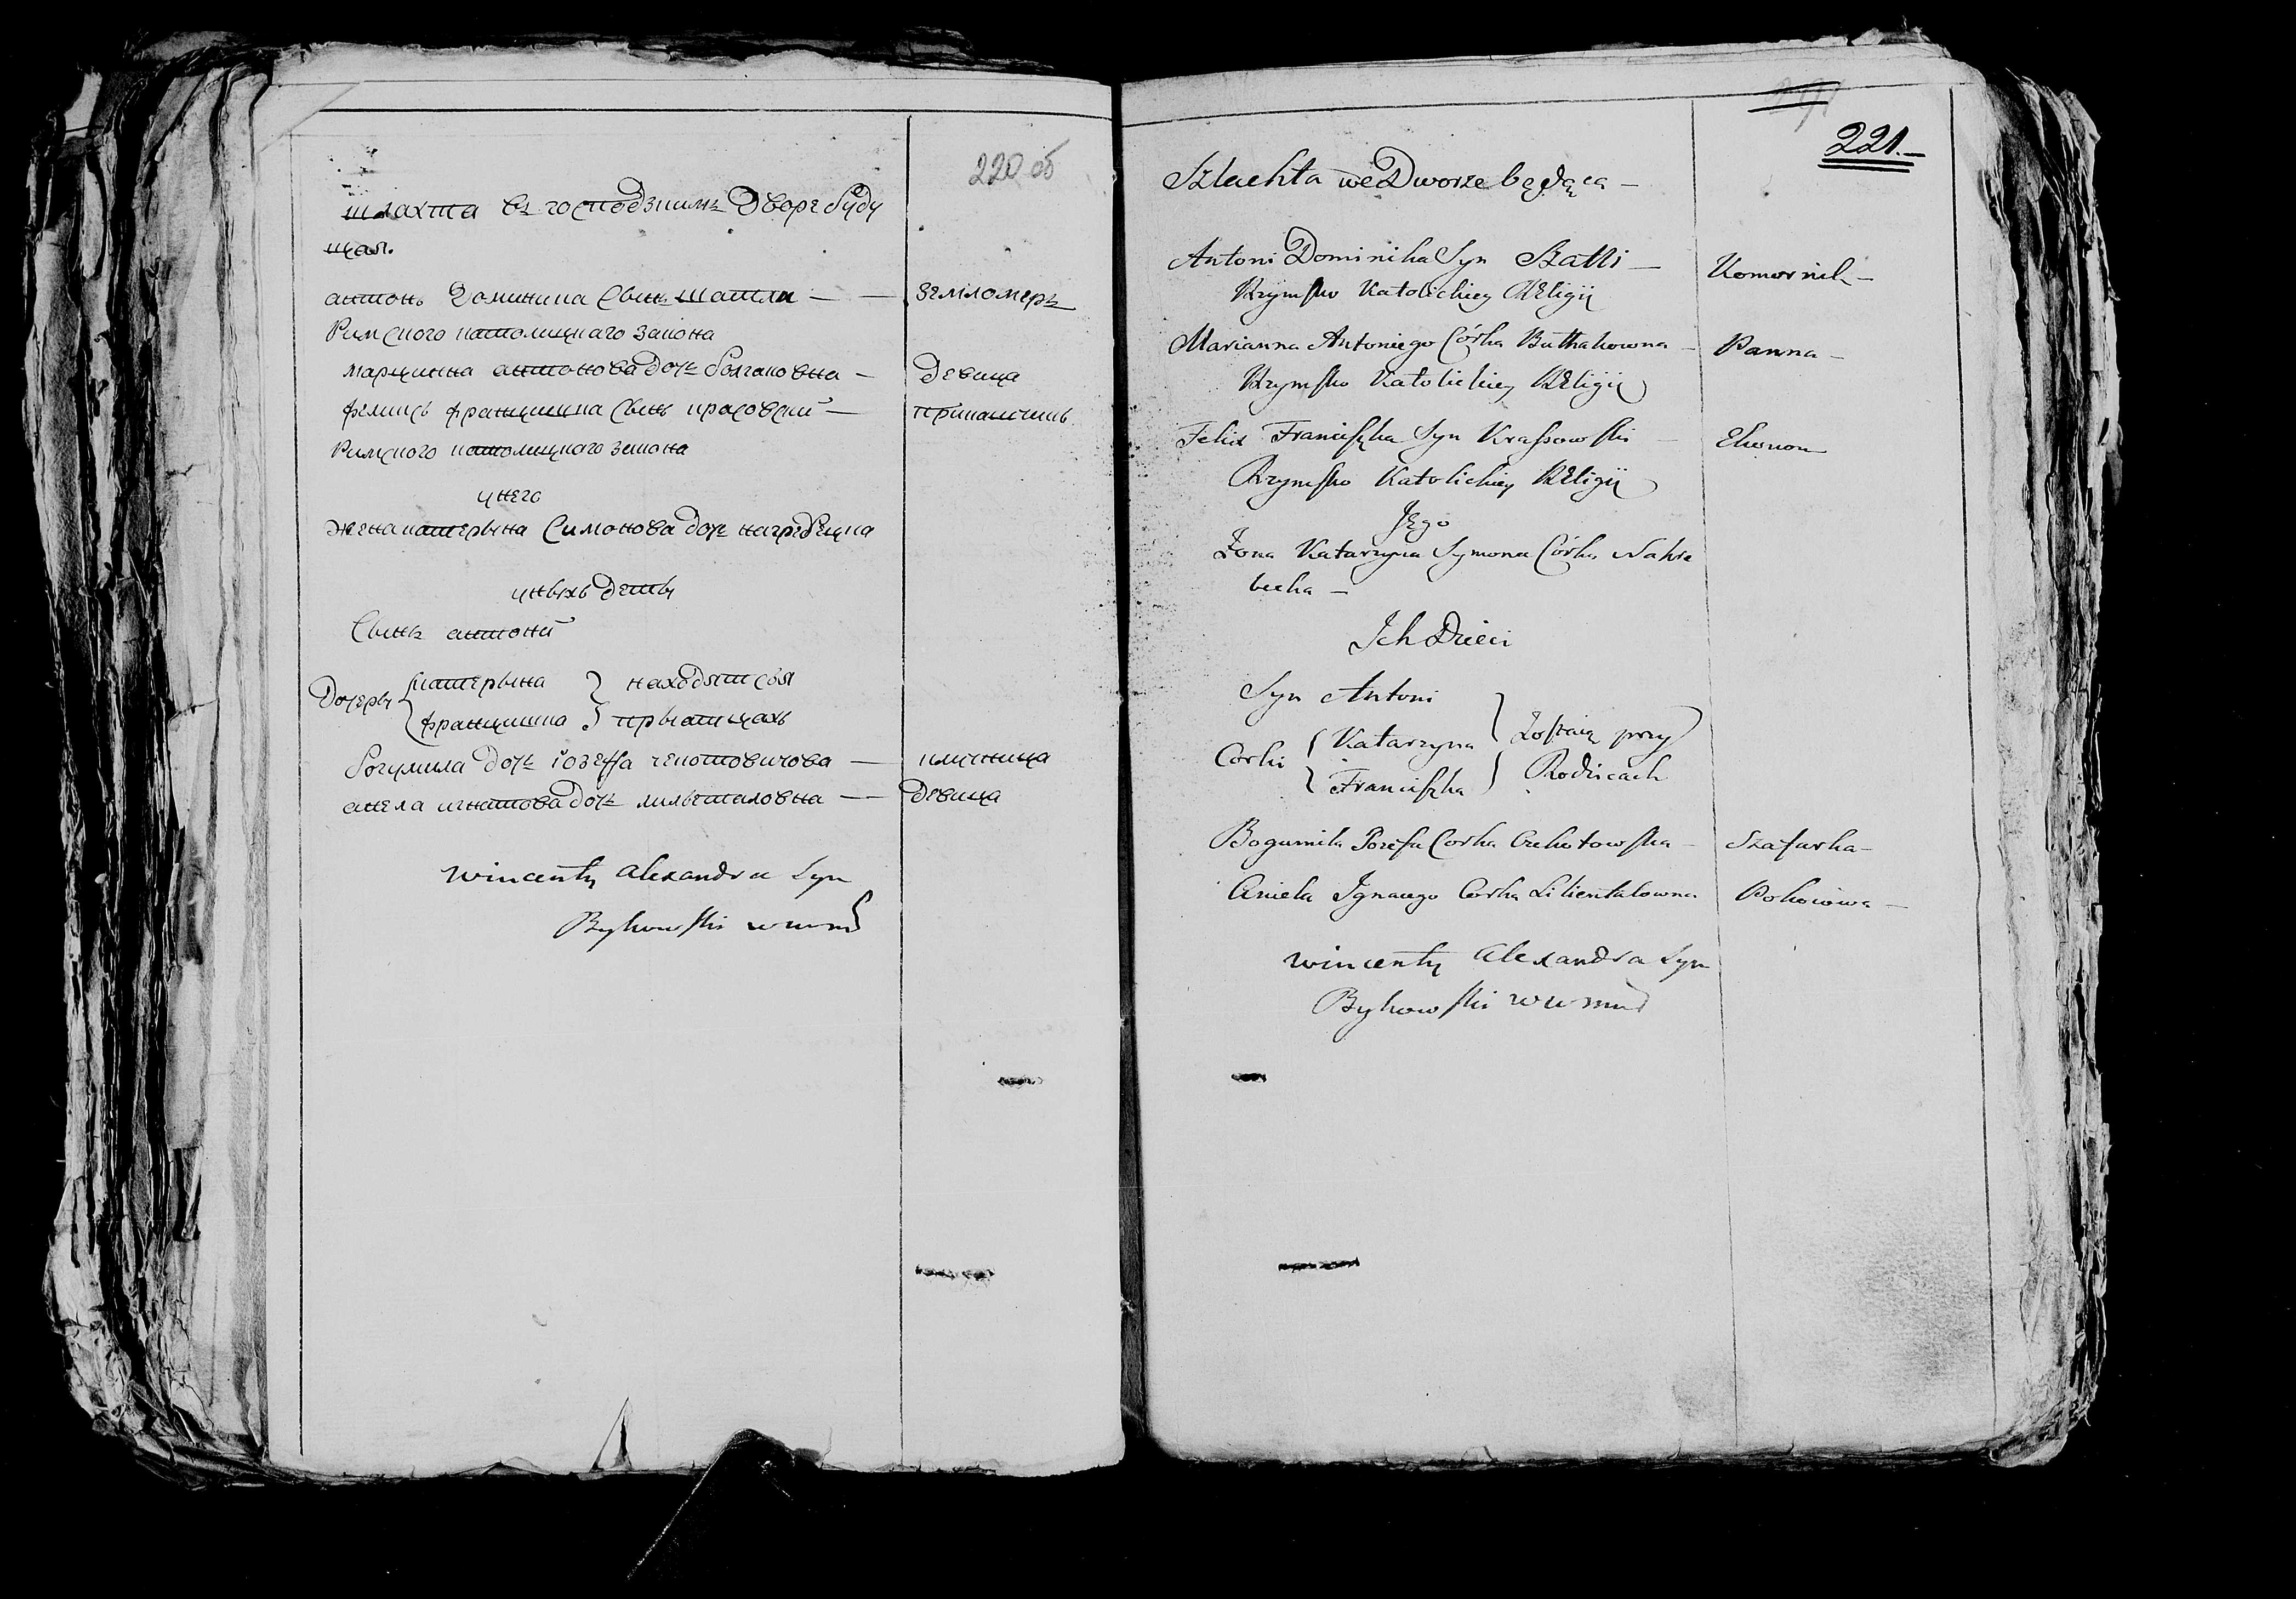 220 об
шлахта въ господзкимъ Дворе буду
щая.
антонь Доминика Сынъ шатли — — земломеръ
Римского католицкаго закона
марцинна антонова дочъ болгаковна — Девица
феликсь францишка Сынь красовский — приказчикъ
Римского католицкого закона
у него
жена катерына Симонова дочъ нагребецка
у ныхь деты
Сынъ антоний
Дочеры катерына находятсоя
францишка при атцахь
богумила дочъ іозеффа чекотовичова — ключница
анела игнатова дочъ лиленталовна — Девица
Wincenty Alexandra Syn
Bykowski
221.—
Szlachta we Dworze będąca —
Antoni Dominika Syn Szatli — Komornik —
Rzymsko Katolickiey Religii
Marianna Antoniego Córka Buthakowna — Panna —
Rzymsko Katolickiey Religii
Felix Franciszka Syn Krassowski — Ekonom
Rzymsko Katolickiey Religii
Jego
Żona Katarzyna Symona Córka Nahre
becka —
Ich Dzieci
Syn Antoni
Corki Katarzyna Zostaią przy
Franciszka Rodzicach
Bogumila Jozefa Corka Czekotowska — Szafarka —
Aniela Ignacego Corka Lilientalowna Pokoiowa —
Wincenty Alexandra Syn
Bykowski